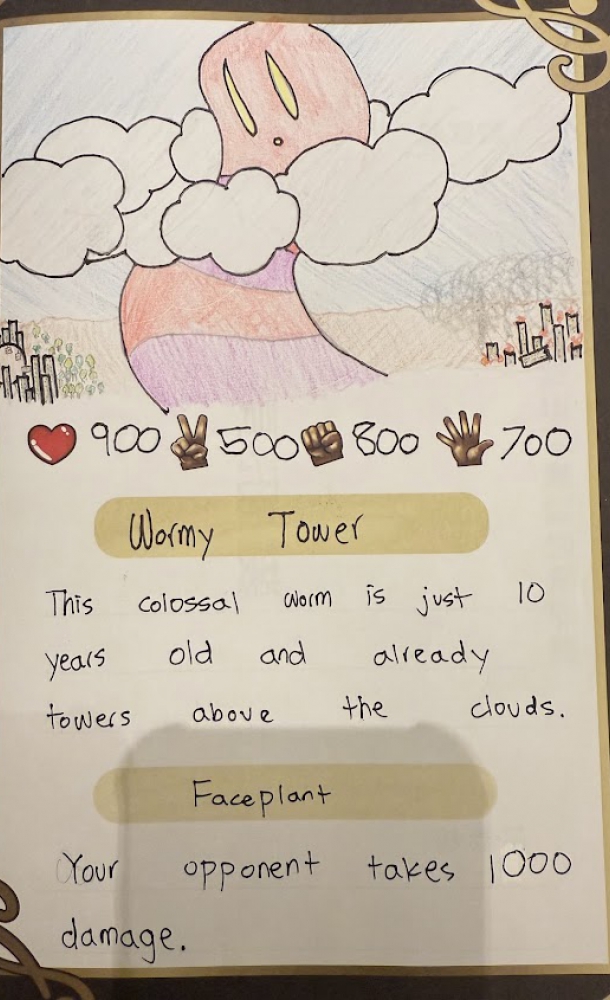 900 500 800 700
Wormy Tower
This colossal worm is just 10
years old and already
towers above the clouds.
Faceplant
Your opponent takes 1000
damage.